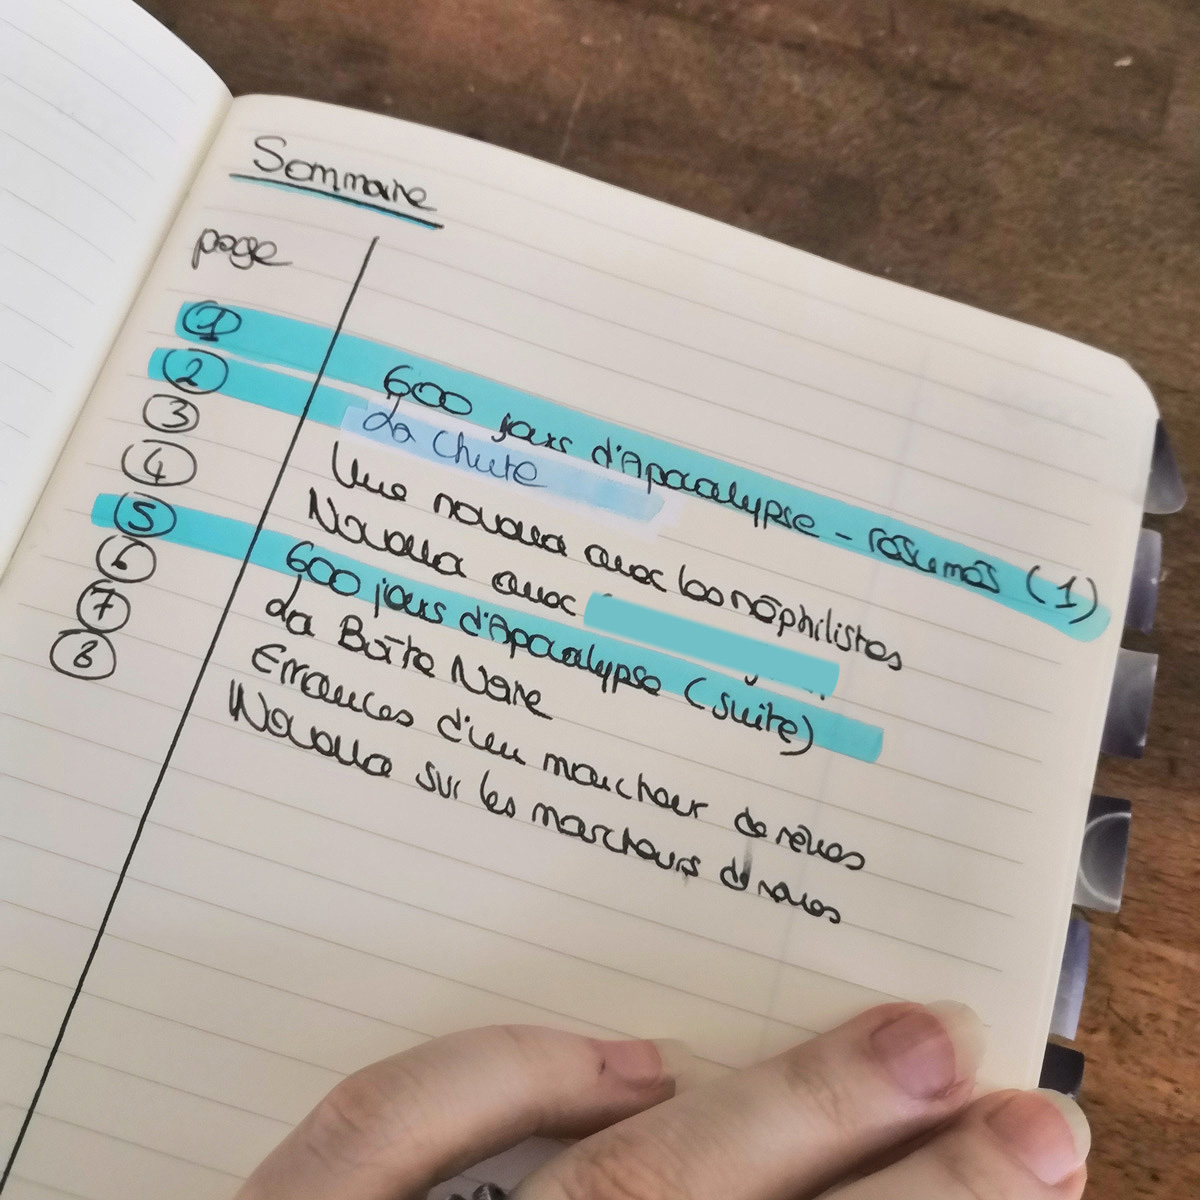 Sommaire
page
1 600 jours d'Apocalypse - résumés (1)
2 La Chute
3 Une nouvelle avec les néphilistes
4 Nouvelle avec
5 600 jours d'Apocalypse (suite)
6 La Boîte Noire
7 Errances d'un marcheur de rêves
8 Nouvelle sur les marcheurs de rêves